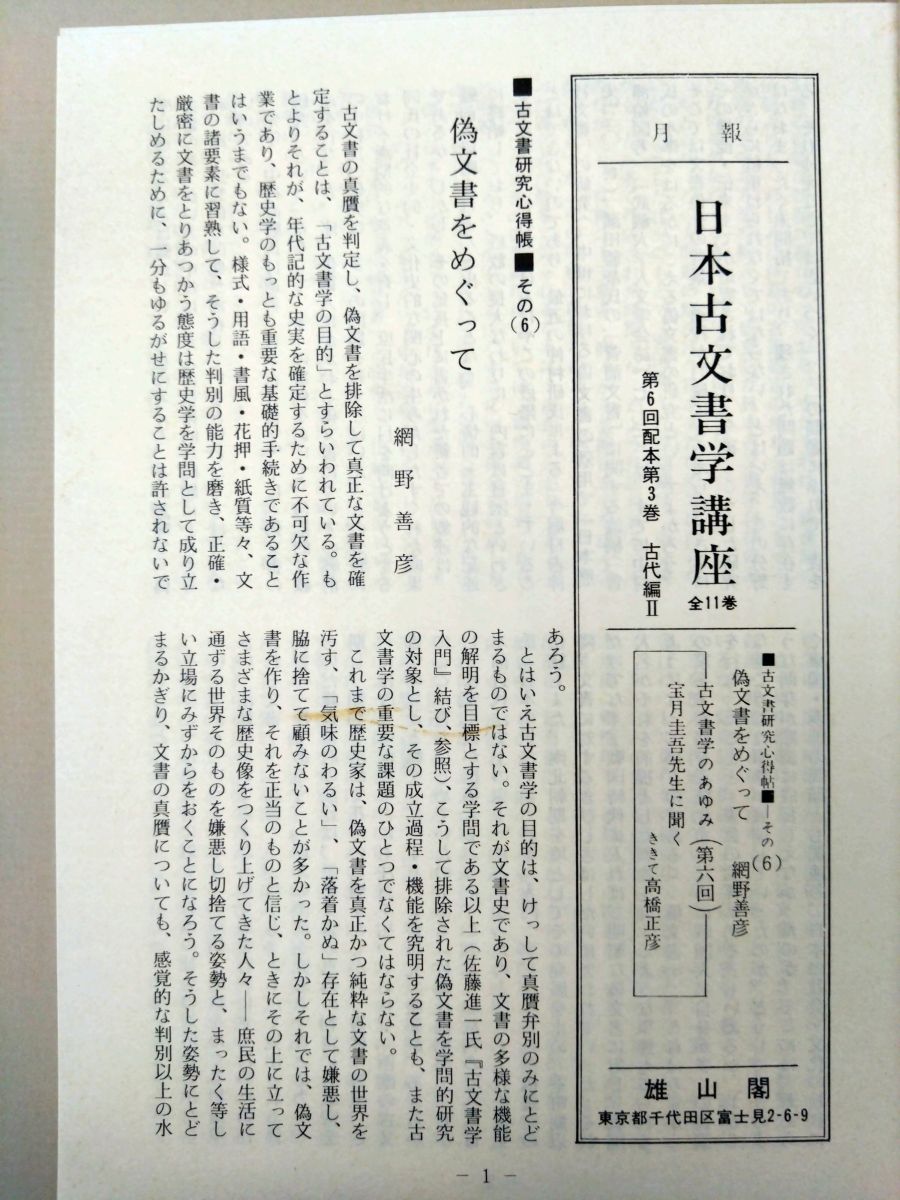 月報
日本古文書学講座
全11巻
第6回配本第3巻 古代編Ⅱ
■古文書研究心得帖■―その(6)
偽文書をめぐって 網野善彦
古文書学のあゆみ(第六回)
宝月圭吾先生に聞く
ききて高橋正彦
雄山閣
東京都千代田区富士見2-6-9
■古文書研究心得帳■その(6)
偽文書をめぐって
網野善彦
古文書の真贋を判定し、偽文書を排除して真正な文書を確
定することは、「古文書学の目的」とすらいわれている。も
とよりそれが、年代記的な史実を確定するために不可欠な作
業であり、歴史学のもっとも重要な基礎的手続きであること
はいうまでもない。様式・用語・書風・花押・紙質等々、文
書の諸要素に習熟して、そうした判別の能力を磨き、正確・
厳密に文書をとりあつかう態度は歴史学を学問として成り立
たしめるために、一分もゆるがせにすることは許されないで
あろう。
とはいえ古文書学の目的は、けっして真贋弁別のみにとど
まるものではない。それが文書史であり、文書の多様な機能
の解明を目標とする学問である以上(佐藤進一氏『古文書学
入門』結び、参照)、こうして排除された偽文書を学問的研究
の対象とし、その成立過程・機能を究明することも、また古
文書学の重要な課題のひとつでなくてはならない。
これまで歴史家は、偽文書を真正かつ純粋な文書の世界を
汚す、「気味のわるい」、「落着かぬ」存在として嫌悪し、
脇に捨てて顧みないことが多かった。しかしそれでは、偽文
書を作り、それを正当のものと信じ、ときにその上に立って
さまざまな歴史像をつくり上げてきた人々――庶民の生活に
通ずる世界そのものを嫌悪し切捨てる姿勢と、まったく等し
い立場にみずからをおくことになろう。そうした姿勢にとど
まるかぎり、文書の真贋についても、感覚的な判別以上の水
－1－